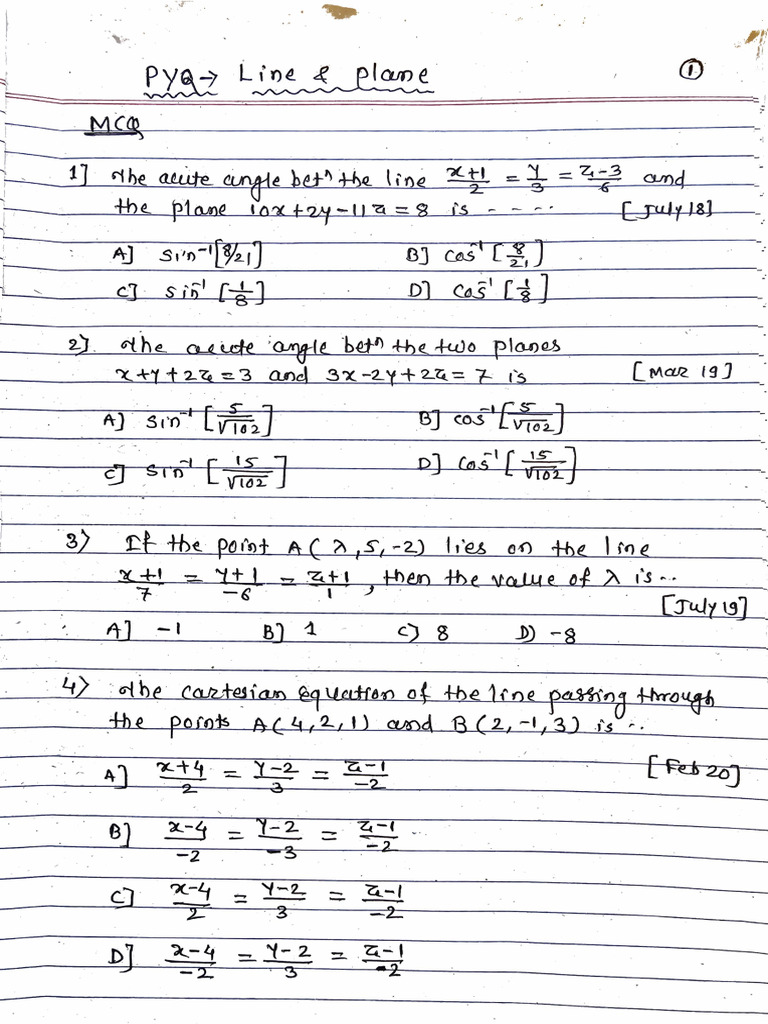 PYQ → Line & plane ①
MCQ
1] The acute angle betⁿ the line x+1/2 = y/3 = z-3/6 and
the plane 10x+2y-11z=8 is - - - - [July 18]
A] sin⁻¹[8/21] B] cos⁻¹[8/21]
C] sin⁻¹[1/8] D] cos⁻¹[1/8]
2] The acute angle betⁿ the two planes
x+y+2z=3 and 3x-2y+2z=7 is [Mar 19]
A] sin⁻¹[5/√102] B] cos⁻¹[5/√102]
C] sin⁻¹[15/√102] D] cos⁻¹[15/√102]
3) If the point A(λ,5,-2) lies on the line
x+1/7 = y+1/-6 = z+1/1, then the value of λ is..
[July 19]
A] -1 B] 1 C] 8 D) -8
4) The cartesian equation of the line passing through
the points A(4,2,1) and B(2,-1,3) is ..
A] x+4/2 = y-2/3 = z-1/-2 [Feb 20]
B] x-4/-2 = y-2/-3 = z-1/-2
C] x-4/2 = y-2/3 = z-1/-2
D] x-4/-2 = y-2/3 = z-1/-2